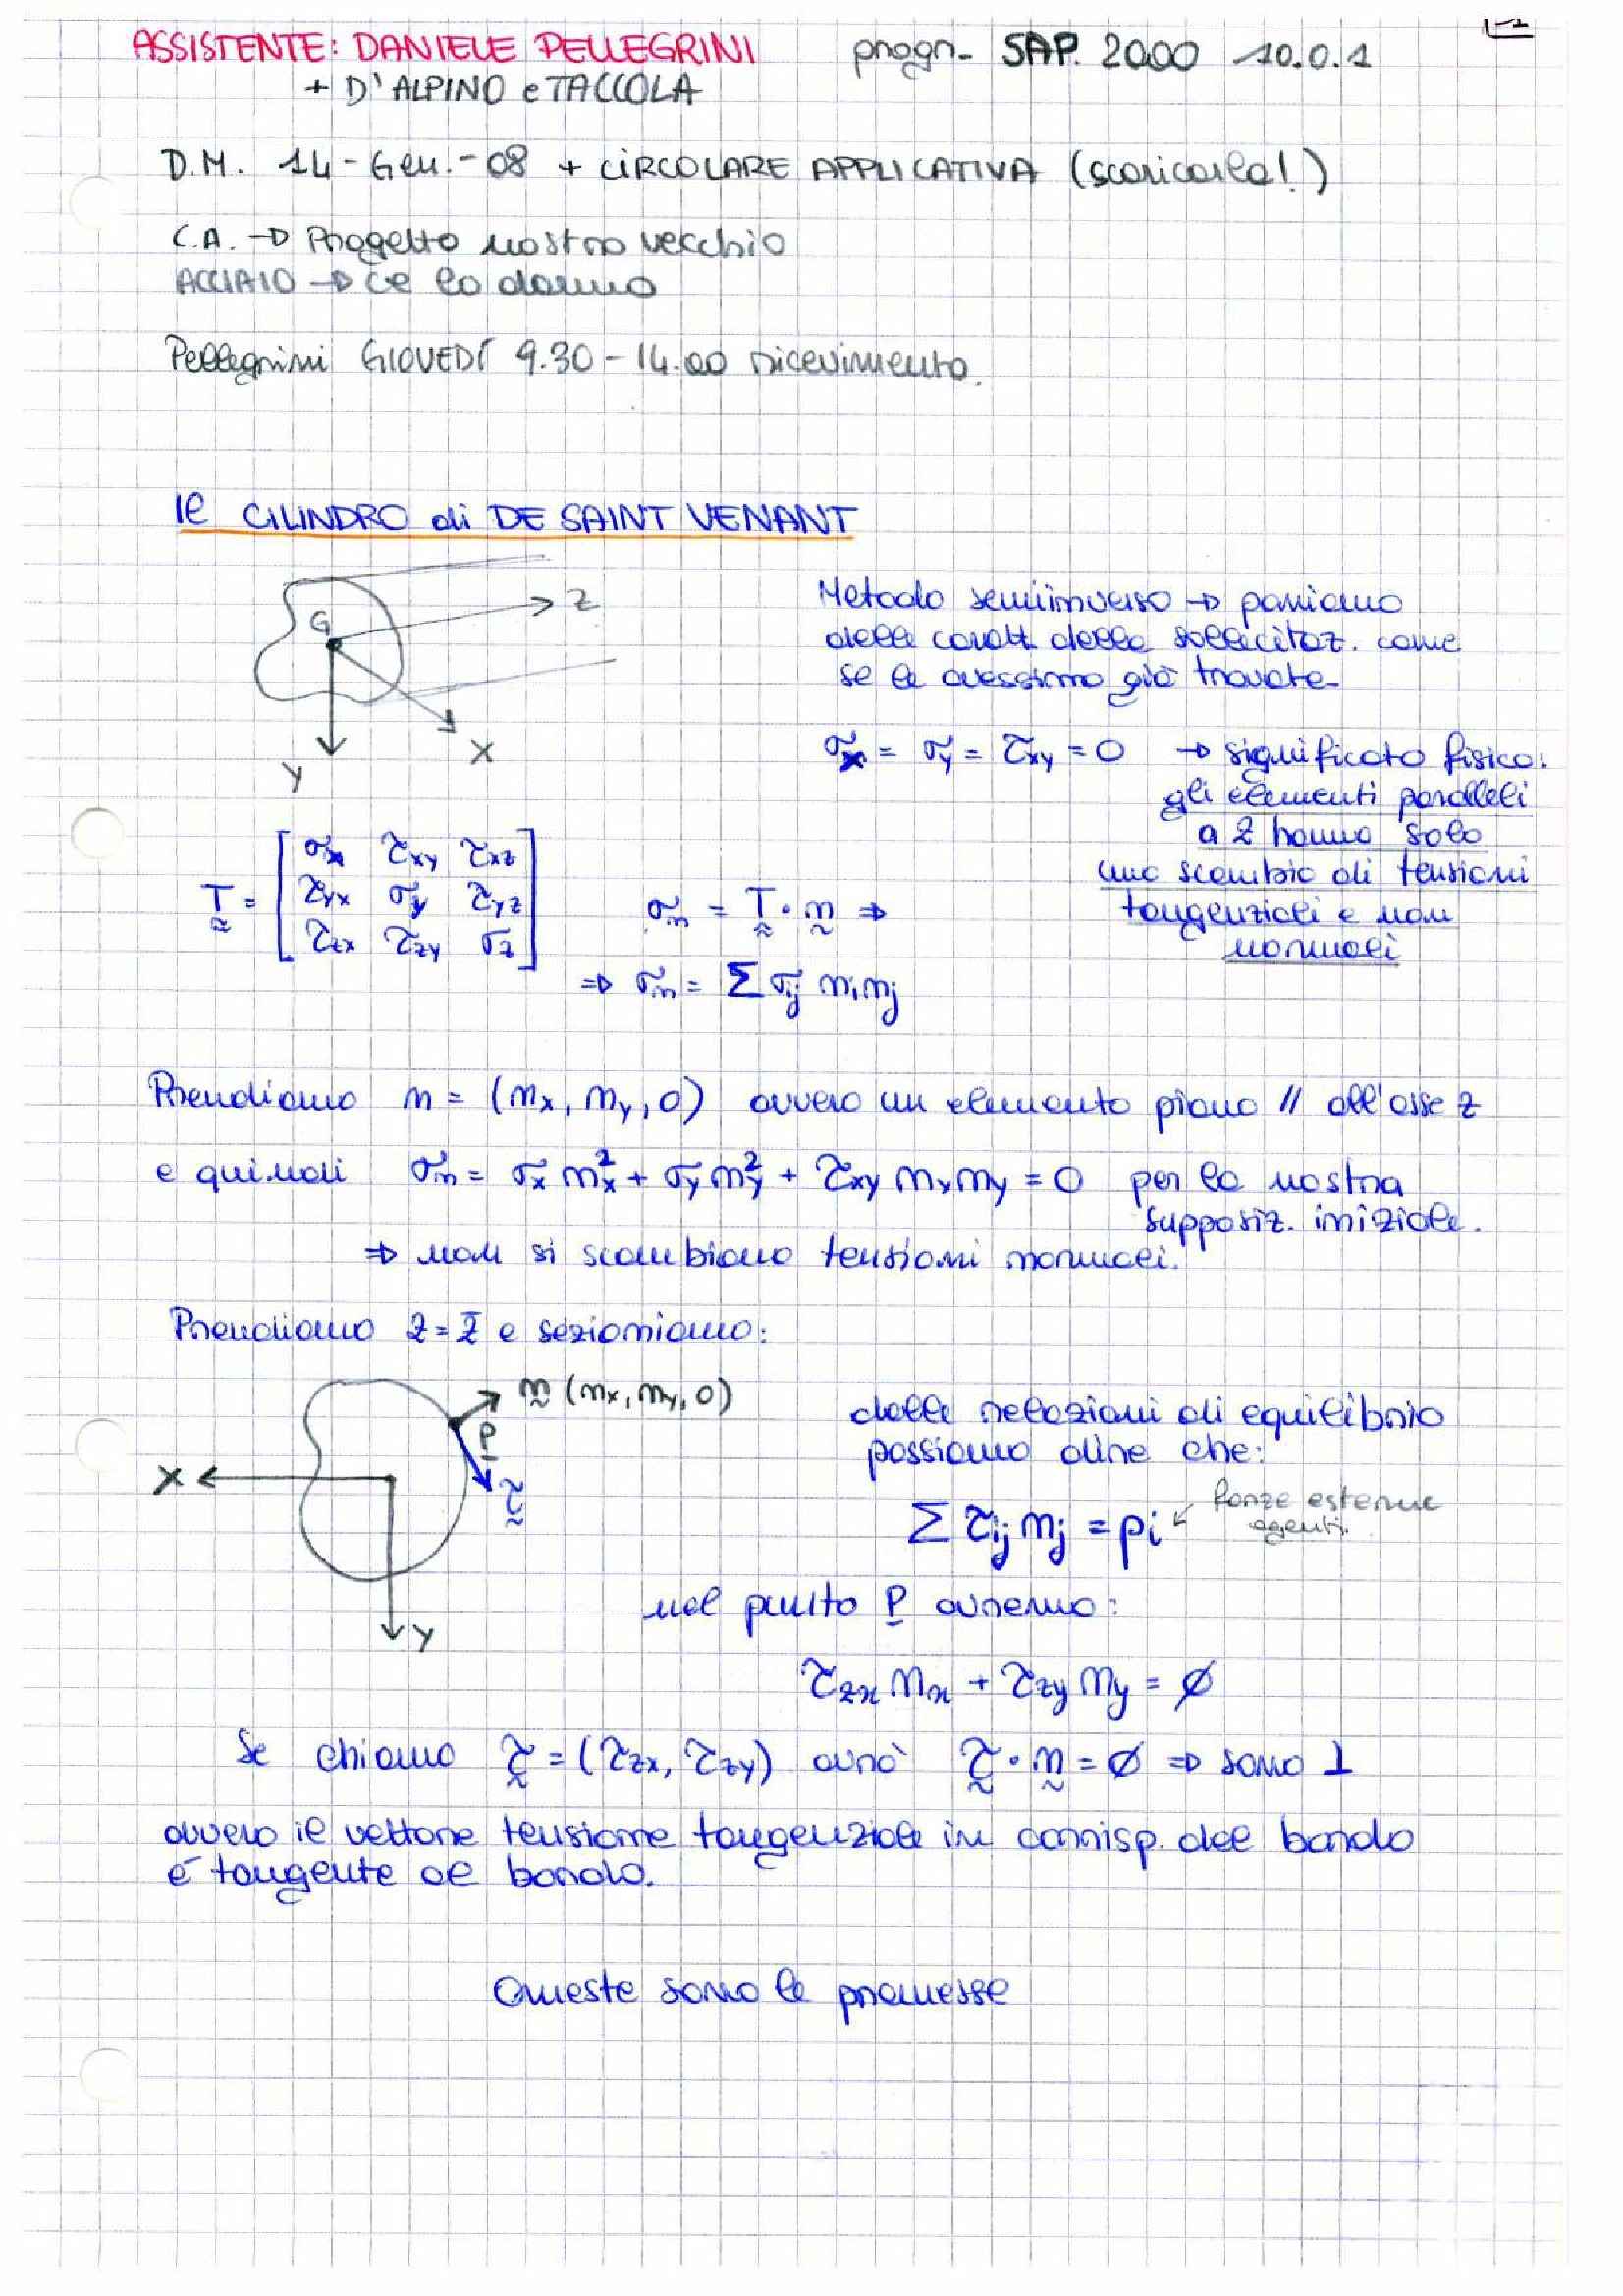 ASSISTENTE: DANIELE PELLEGRINI progr. SAP. 2000 10.0.1
+ D'ALPINO e TACCOLA
D.M. 14-Gen.-08 + CIRCOLARE APPLICATIVA (scaricarla!)
C.A. → Progetto nostro vecchio
ACCIAIO → ce lo danno
Pellegrini GIOVEDÍ 9.30-14.00 ricevimento.
Il CILINDRO di DE SAINT VENANT
G
Z
X
Y
Metodo semiinverso → poniamo
delle caratt. della sollecitaz. come
se le avessimo già trovate.
σx = σy = τxy = 0 → significato fisico:
gli elementi paralleli
a z hanno solo
uno scambio di tensioni
tangenziali e non
normali
T = [ σx τxy τxz
τyx σy τyz
τzx τzy σz ]
σn = T · n ⇒
⇒ σn = Σ σij ni nj
Prendiamo n = (nx, ny, 0) ovvero un elemento piano // all'asse z
e quindi σn = σx nx² + σy ny² + τxy nx ny = 0 per la nostra
supposiz. iniziale.
⇒ non si scambiano tensioni normali.
Prendiamo z = z̄ e sezioniamo:
n (nx, ny, 0)
P
τ
X
Y
dalle relazioni di equilibrio
possiamo dire che:
Σ τij nj = pi ← forze esterne
agenti.
nel punto P avremo:
τzx nx + τzy ny = ∅
Se chiamo τ = (τzx, τzy) avrò τ · n = ∅ ⇒ sono ⊥
ovvero il vettore tensione tangenziale in corrisp. del bordo
è tangente al bordo.
Queste sono le premesse